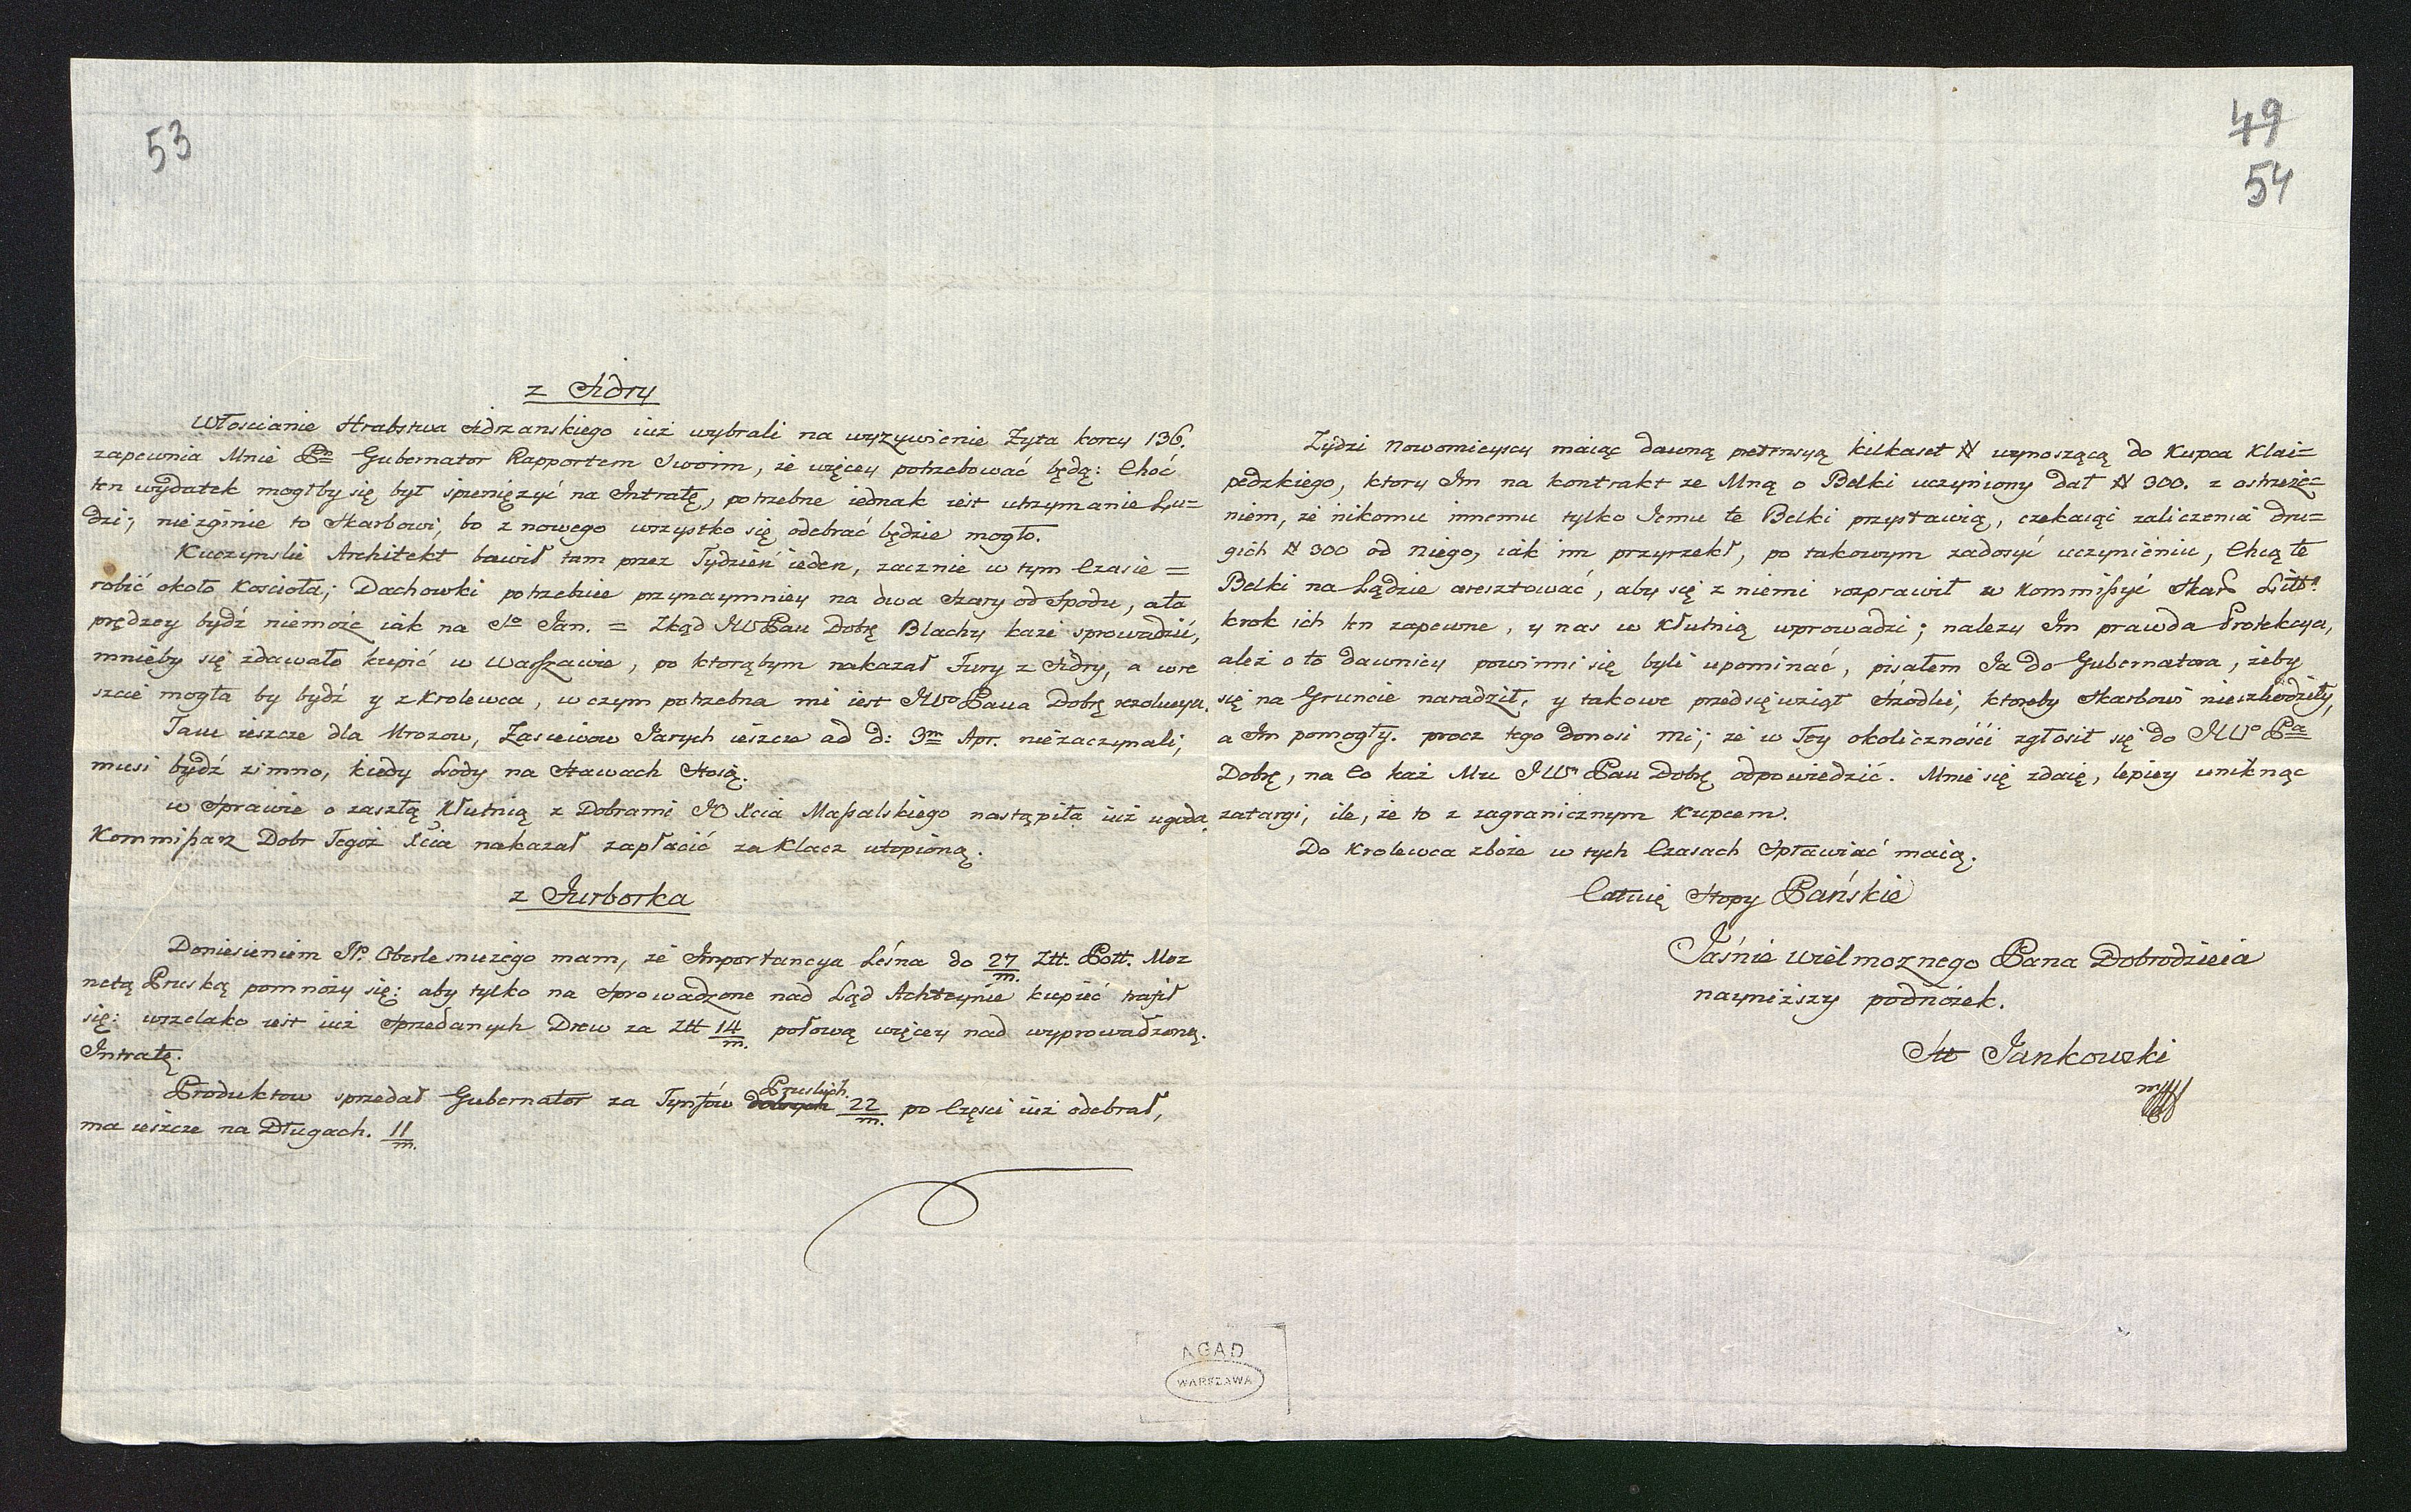 53
z Sidry
Włoscianie Hrabstwa Sidrzanskiego iuż wybrali na wyzywienie Zyta korcy 136.
zapewnia Mnie Pn Gubernator Rapportem Swoim, że więcey potrzebować będą: Choć
ten wydatek mogłby się był spienięzyć na Intratę, potrzebne iednak iest utrzymanie Lu=
dzi; niezginie to Skarbowi, bo z nowego wszystko się odebrać będzie mogło.
Kuczynski Architekt bawił tam przez Tydzień ieden, zacznie w tym Czasie =
robić około Kościoła; Dachowski potrzebuie przynaymniey na dwa Szary od Spodu, ala
prędzey bydź niemoże iak na Sto Jan. = Zkąd JWPan Dobrę Blachy każe sprowadzić,
mnieby się zdawało kupić w Warszawie, po ktorąbym nakazał Fury z Sidry, a wre
szcie mogła by bydź y z Krolewca, w czym potrzebna mi iest JWo Pana Dobrę rezolucya.
Tam ieszcze dla Mrozow, Zasiewow Jarych ieszcze ad d: 3m Apr. niezaczynali,
musi bydź zimno, kiedy Lody na Stawach Stoią.
w Sprawie o zaszłą Kłutnią z Dobrami JO Xcia Massalskiego nastąpiła iuż ugoda.
Kommissarz Dobr Tegoż Xcia nakazał zapłacić za Klacz utopioną.
z Jurborka
Doniesieniem Jp. Oberlesniczego mam, że Importancya Leśna do 27/m. Ztt. Pott. Mo=
netą Pruską pomnoży się: aby tylko na Sprowadzone nad Ląd Achteynie kupiec trafił
się: wszelako iest iuż Sprzedanych Drew za Ztt 14/m. połową więcey nad wyprowadzoną.
Intratę.
Produktow sprzedał Gubernator za Tynfów Pruskich. 22/m. po Częsci iuż odebrał,
ma ieszcze na Długach. 11/m.
49
54
Zydzi Nowomieyscy maiąc dawną pretensyą kilkaset # wynoszącą do Kupca Klai=
pedzkiego, ktory Im na kontrakt ze Mną o Belki uczyniony dał # 300. z ostrzeże=
niem, że nikomu innemu tylko Jemu te Belki przystawią, czekaiąc zaliczenia dru=
gich # 300 od Niego, iak im przyrzekł, po takowym zadosyć uczynieniu, Chcą te
Belki na Lądzie aresztować, aby się z niemi rozprawił w Kommissyi Skarb Litt.
krok ich ten zapewne, y nas w Kłutnią wprowadzi; nalezy Im prawda Protekcya,
aleź o to dawniey powinni się byli upominać, pisałem Ja do Gubernatora, żeby
się na Gruncie naradził, y takowe przedsięwziął Srzodki, ktoreby Skarbowi nieszkodziły,
a Im pomogły. procz tego donosi mi; że w Tey okoliczności zgłosił się do JWo Pa
Dobrę, na Co każ Mu JWn Pan Dobrę odpowiedzić. Mnie się zdaię, lepiey uniknąc
zatargi, ile, że to z zagranicznym Kupcem.
Do Krolewca zboże w tych Czasach Spławiać maią.
Całuię Stopy Pańskie
Jaśnie Wielmoznego Pana Dobrodzieia
nayniższy podnóżek.
Jankowski
AGAD
WARSZAWA